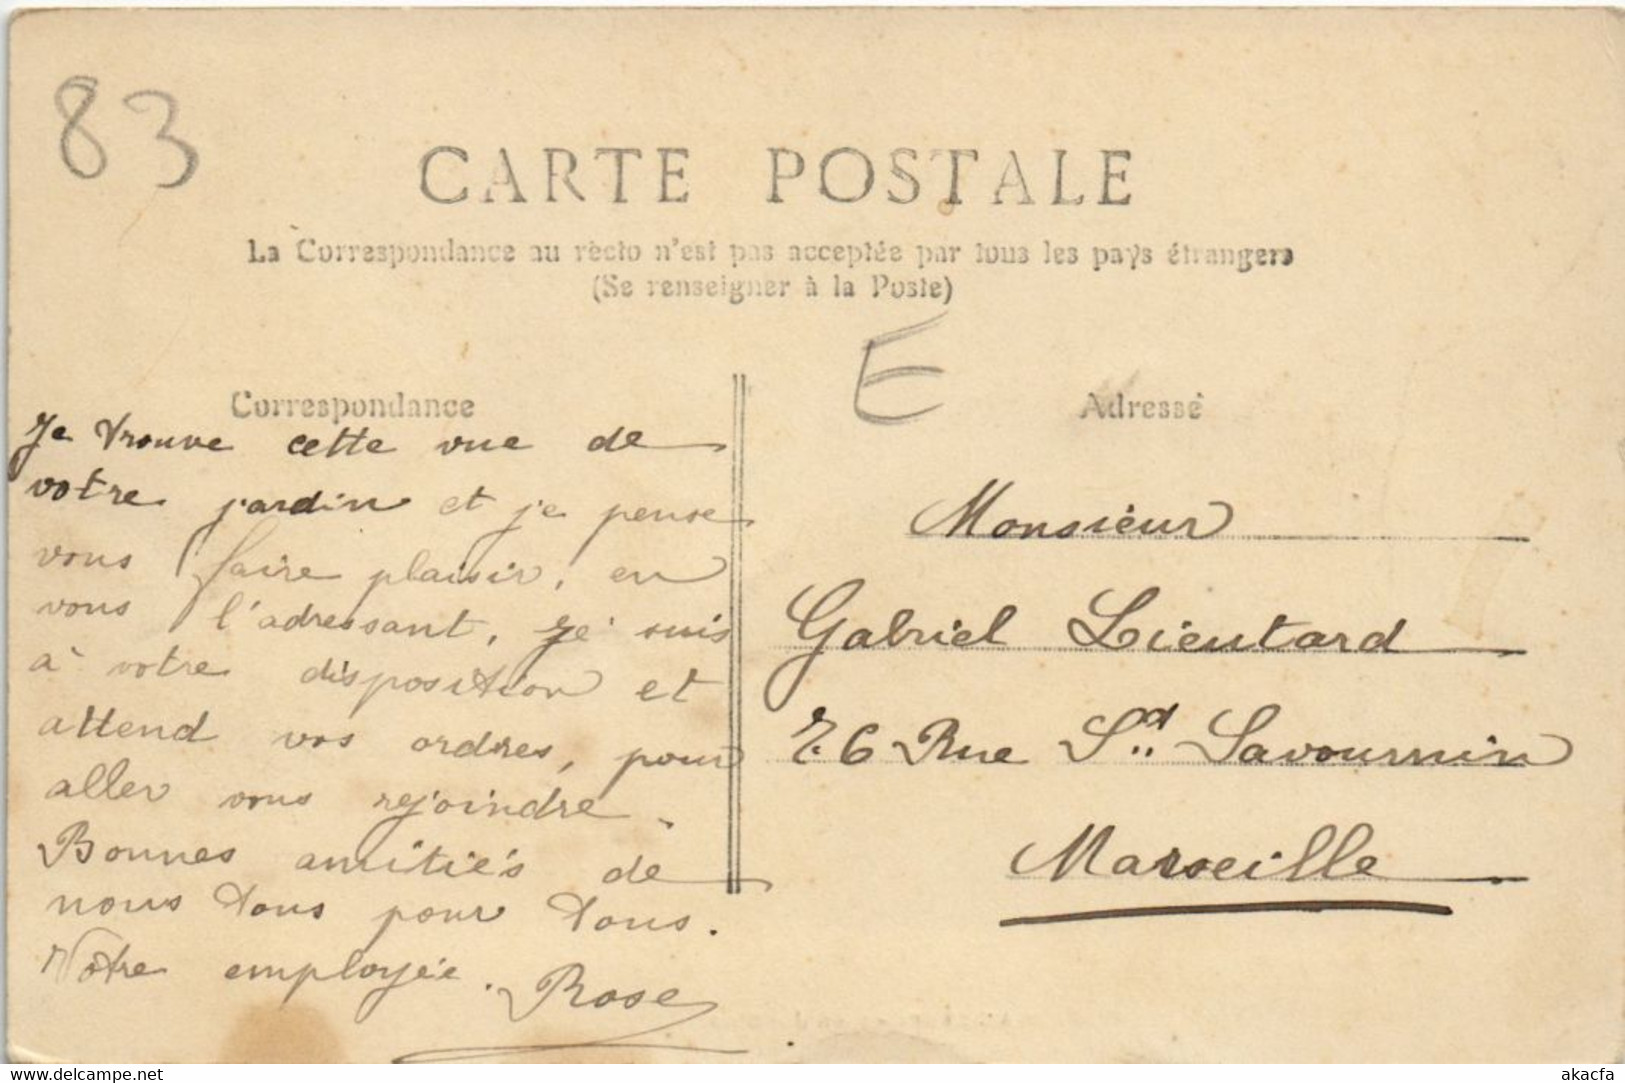 83
CARTE POSTALE
La Correspondance au recto n'est pas acceptée par tous les pays étrangers
(Se renseigner à la Poste)
E
Correspondance
Je trouve cette vue de
votre jardin et je pense
vous faire plaisir, en
vous l'adressant, je suis
à votre disposition et
attend vos ordres, pour
aller vous rejoindre.
Bonnes amitiés de
nous tous pour tous.
Votre employée. Rose
Adresse
Monsieur
Gabriel Lieutard
76 Rue Sd Savournin
Marseille
www.delcampe.net
akacfa